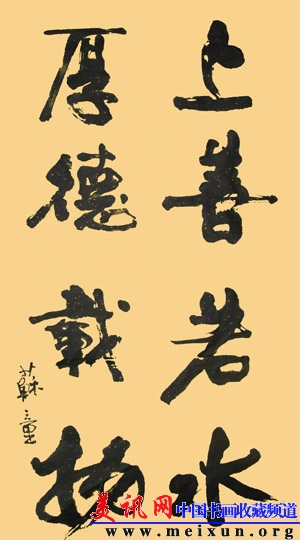 上善若水
厚德載物
蘇三童
美讯网
中国书画收藏频道
www.meixun.org